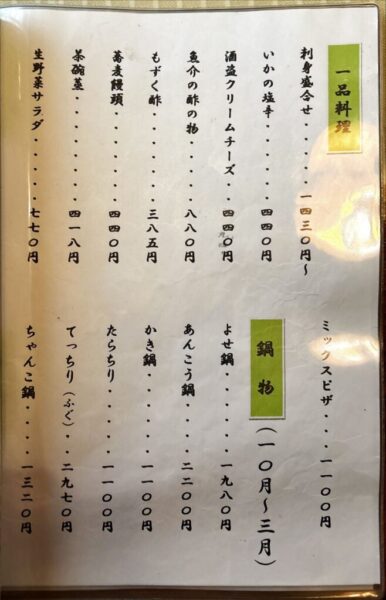 一品料理
刺身盛合せ・・・・・一四三〇円～
いかの塩辛・・・・・四四〇円
酒盗クリームチーズ・・四四〇円
魚介の酢の物・・・・八八〇円
もずく酢・・・・・・三八五円
蕎麦饅頭・・・・・・四四〇円
茶碗蒸・・・・・・・四一八円
生野菜サラダ・・・・・七七〇円
ミックスピザ・・・・一一〇〇円
鍋物（一〇月～三月）
よせ鍋・・・・・・一九八〇円
あんこう鍋・・・・二二〇〇円
かき鍋・・・・・・一一〇〇円
たらちり・・・・・一一〇〇円
てっちり（ふぐ）・・二九七〇円
ちゃんこ鍋・・・・・一三二〇円